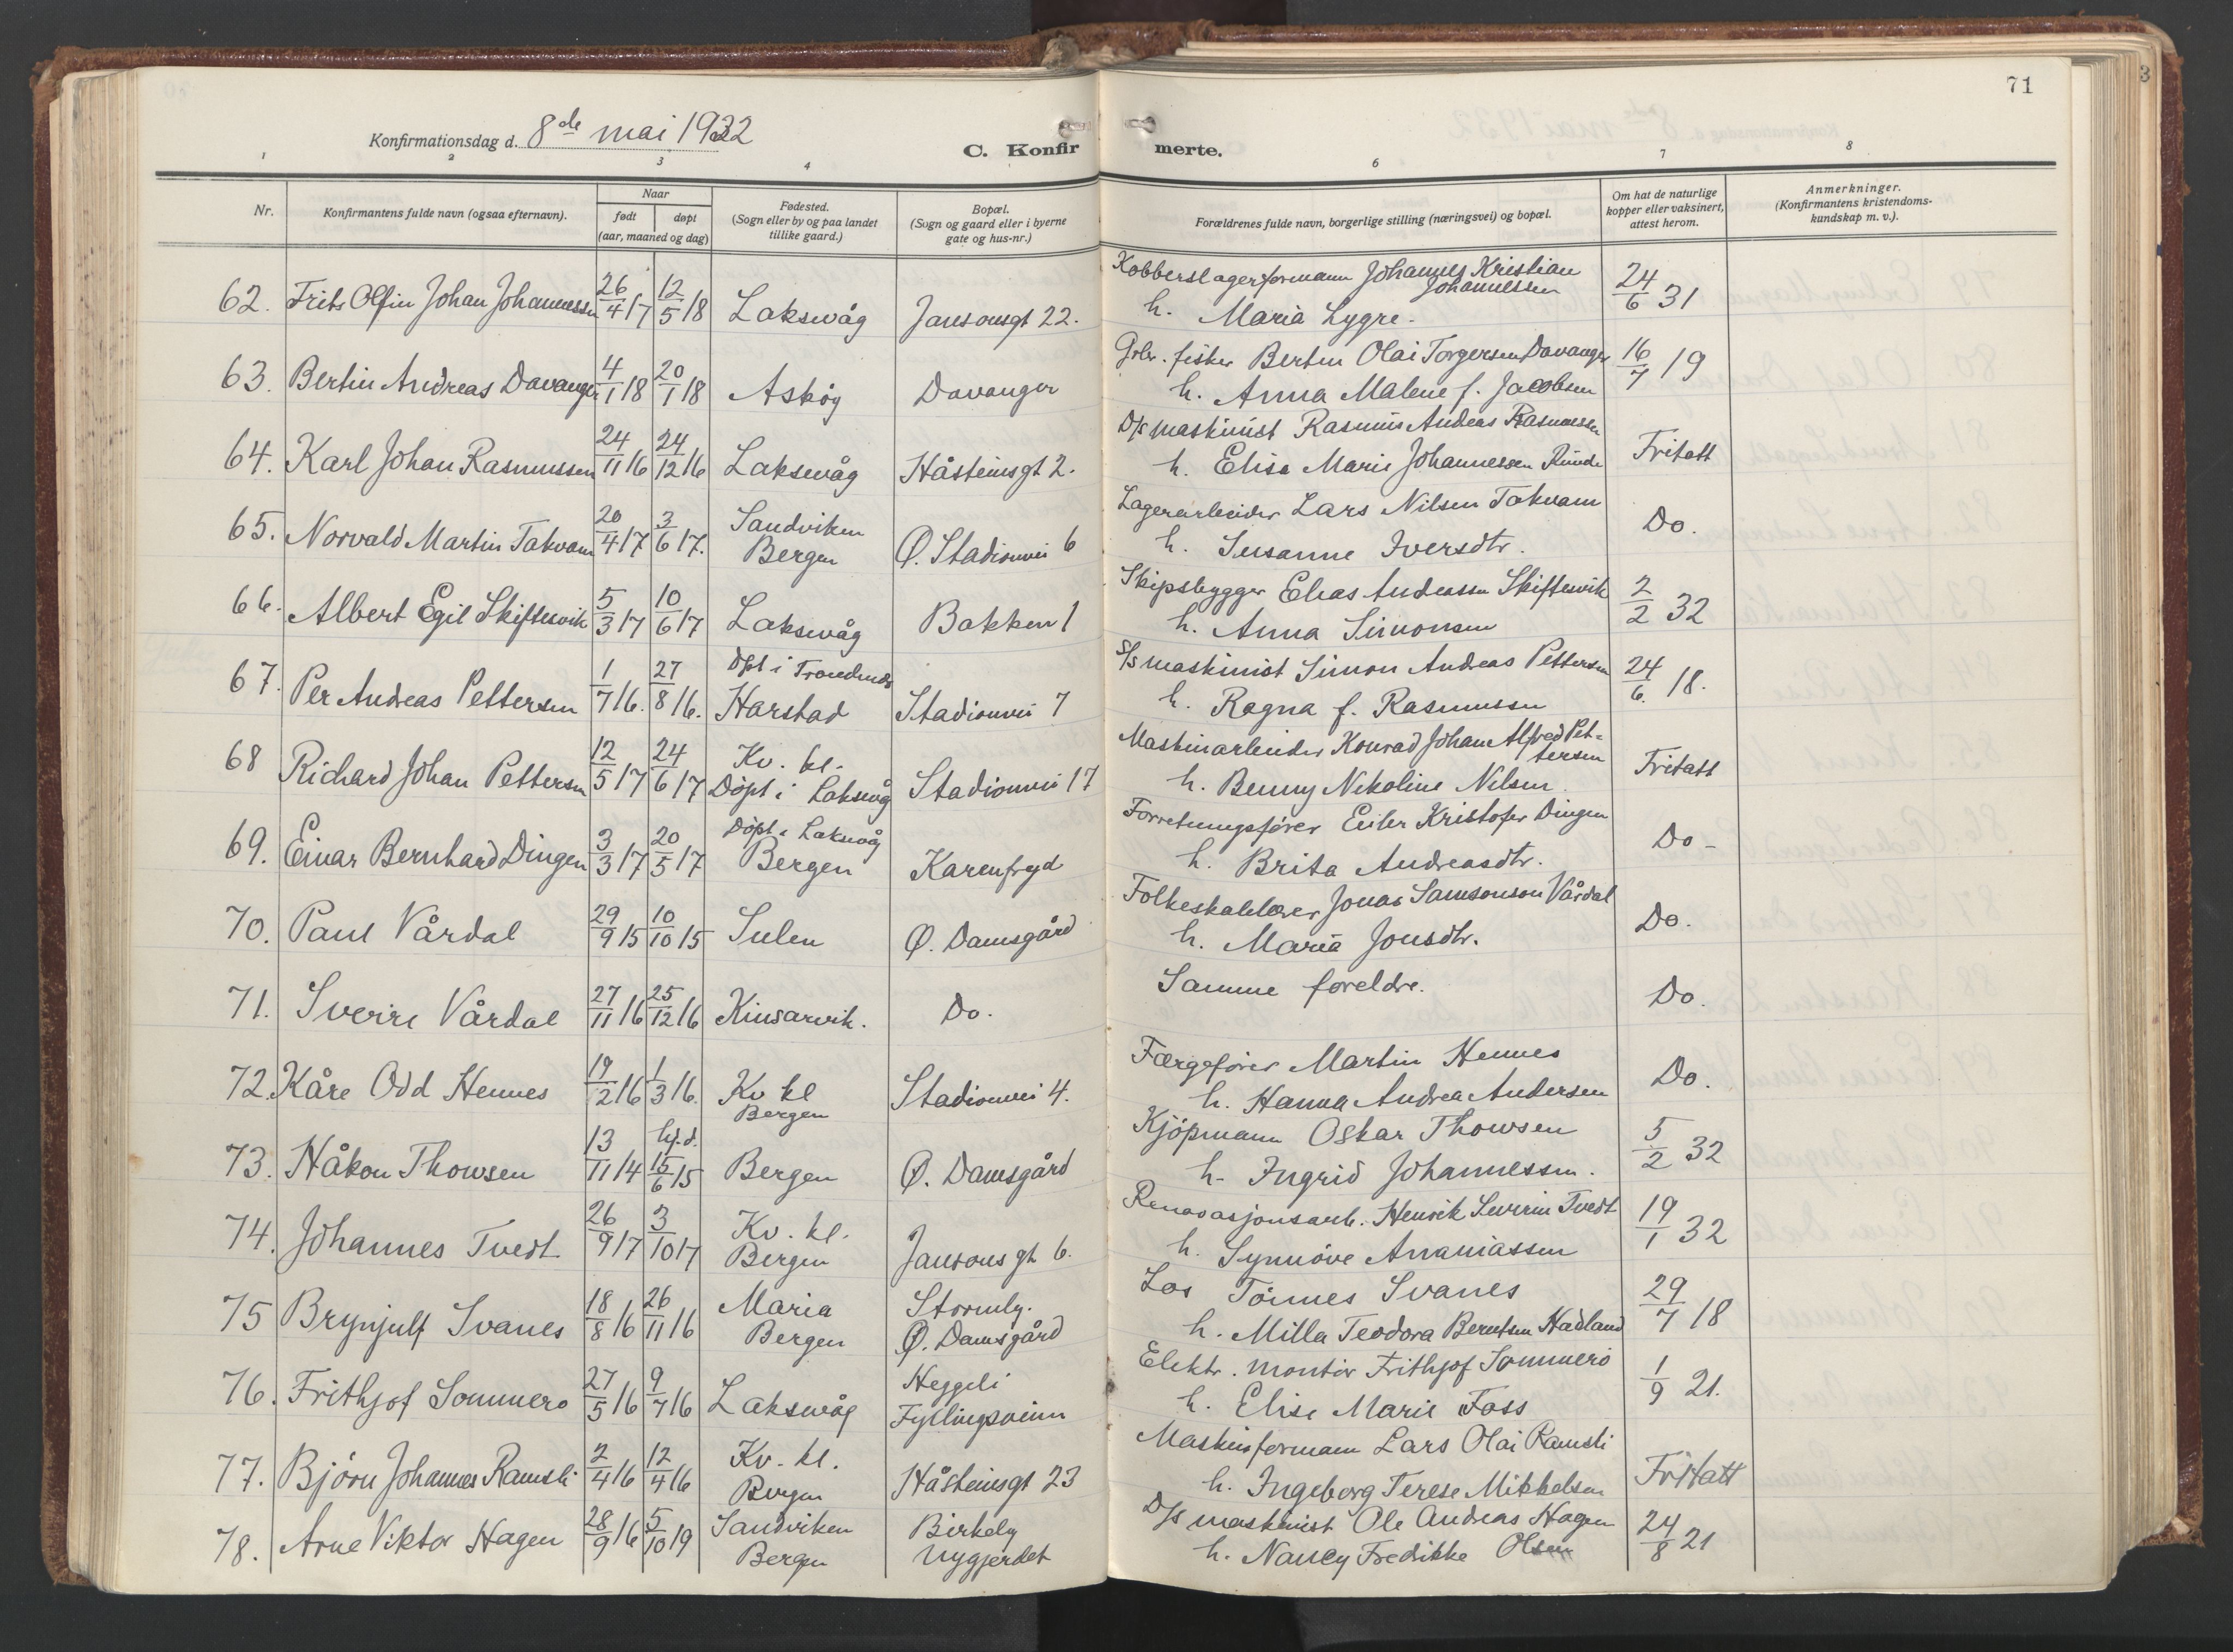 71
3
Konfirmationsdag d. 8de mai 1932
C. Konfirmerte.
1 2 3 4 6 7 8
Nr.
Konfirmantens fulde navn (ogsaa efternavn).
Naar
født døpt
(aar, maaned og dag)
Fødested.
(Sogn eller by og paa landet
tillike gaard.)
Bopæl.
(Sogn og gaard eller i byerne
gate og hus-nr.)
Forældrenes fulde navn, borgerlige stilling (næringsvei) og bopæl.
Om hat de naturlige
kopper eller vaksinert,
attest herom.
Anmerkninger.
(Konfirmantens kristendoms-
kundskap m. v.).
62. Frits Olfin Johan Johannessen 26/4 17 12/5 18 Laksevåg Jansonsgt 22. Kobberslagerformann Johannes Kristian
Johannessen
h. Maria Lygre. 24/6 31
63. Bertin Andreas Davanger 4/1 18 20/1 18 Askøy Davanger Grbr. fisker Bertin Olai Torgersen Davanger 16/7 19
h. Anna Malene f. Jacobsen
64. Karl Johan Rasmussen 24/11 16 24/12 16 Laksevåg Håsteinsgt 2. D/s maskinist Rasmus Andreas Rasmussen
h. Elisa Marie Johannessen Runde Fritatt
65. Norvald Martin Takvam 20/4 17 3/6 17. Sandviken
Bergen Ø. Stadionvei 6 Lagerarbeider Lars Nilsen Takvam
h. Susanne Iversdtr. Do.
66. Albert Egil Skiftesvik 5/3 17 10/6 17 Laksevåg Bakken 1 Skipsbygger Elias Andreassen Skiftesvik
h. Anna Simonsen 2/2 32
67. Per Andreas Pettersen 1/7 16. 27/8 16. Døpt i Trondenes
Harstad Stadionvei 7 S/s maskinist Simon Andreas Pettersen
h. Ragna f. Rasmussen 24/6. 18.
68 Richard Johan Pettersen 12/5 17 24/6 17 Kv. kl.
Døpt i Laksevåg Stadionvei 17 Maskinarbeider Konrad Johan Alfred Pet-
tersen
h. Benny Nikoline Nilsen. Fritatt
69. Einar Bernhard Dingen 3/3 17 20/5 17 Døpt i Laksevåg
Bergen Karenfryd Forretningsfører Eiler Kristofer Dingen
h. Brita Andreasdtr. Do -
70. Paul Vårdal 29/9 15 10/10 15 Sulen Ø. Damsgård Folkeskolelærer Jonas Samsonson Vårdal
h. Maria Jonsdtr. Do.
71. Sverre Vårdal 27/11 16 25/12 16 Kinsarvik. Do. Samme foreldre. Do.
72. Kåre Odd Hennes 19/2 16 1/3 16. Kv kl
Bergen Stadionvei 4. Færgefører Martin Hennes
h. Hanna Andrea Andersen Do.
73. Håkon Thowsen 13/11 14 hj.d. 15/6 15 Bergen Ø. Damsgård Kjøpmann Oskar Thowsen
h. Ingrid Johannessen. 5/2 32
74. Johannes Tvedt 26/9 17 3/10 17 Kv. kl.
Bergen Jansons gt 6. Renovasjonsarb. Henrik Severin Tvedt
h. Synnøve Ananiassen 19/1 32
75 Brynjulf Svanes 18/8 16 26/11 16 Maria
Bergen Stormly.
Ø. Damsgård Los Tönnes Svanes
h. Milla Teodora Berntsen Hadland 29/7 18
76. Frithjof Sommerø 27/5 16 9/7 16 Laksevåg Heggeli
Fyllingsveien Elektr. montør Frithjof Sommerø
h. Elise Marie Foss 1/9 21.
77. Bjørn Johannes Ramsli 2/4 16 12/4 16 Kv. kl.
Bergen Håsteinsgt 23 Maskinformann Lars Olai Ramsli
h. Ingeborg Terese Mikkelsen Fritatt
78. Arne Viktor Hagen 28/9 16 5/10 19 Sandviken
Bergen Birkely
Nygjerdet D/s maskinist Ole Andreas Hagen
h. Nancy Fredrikke Olsen 24/8 21